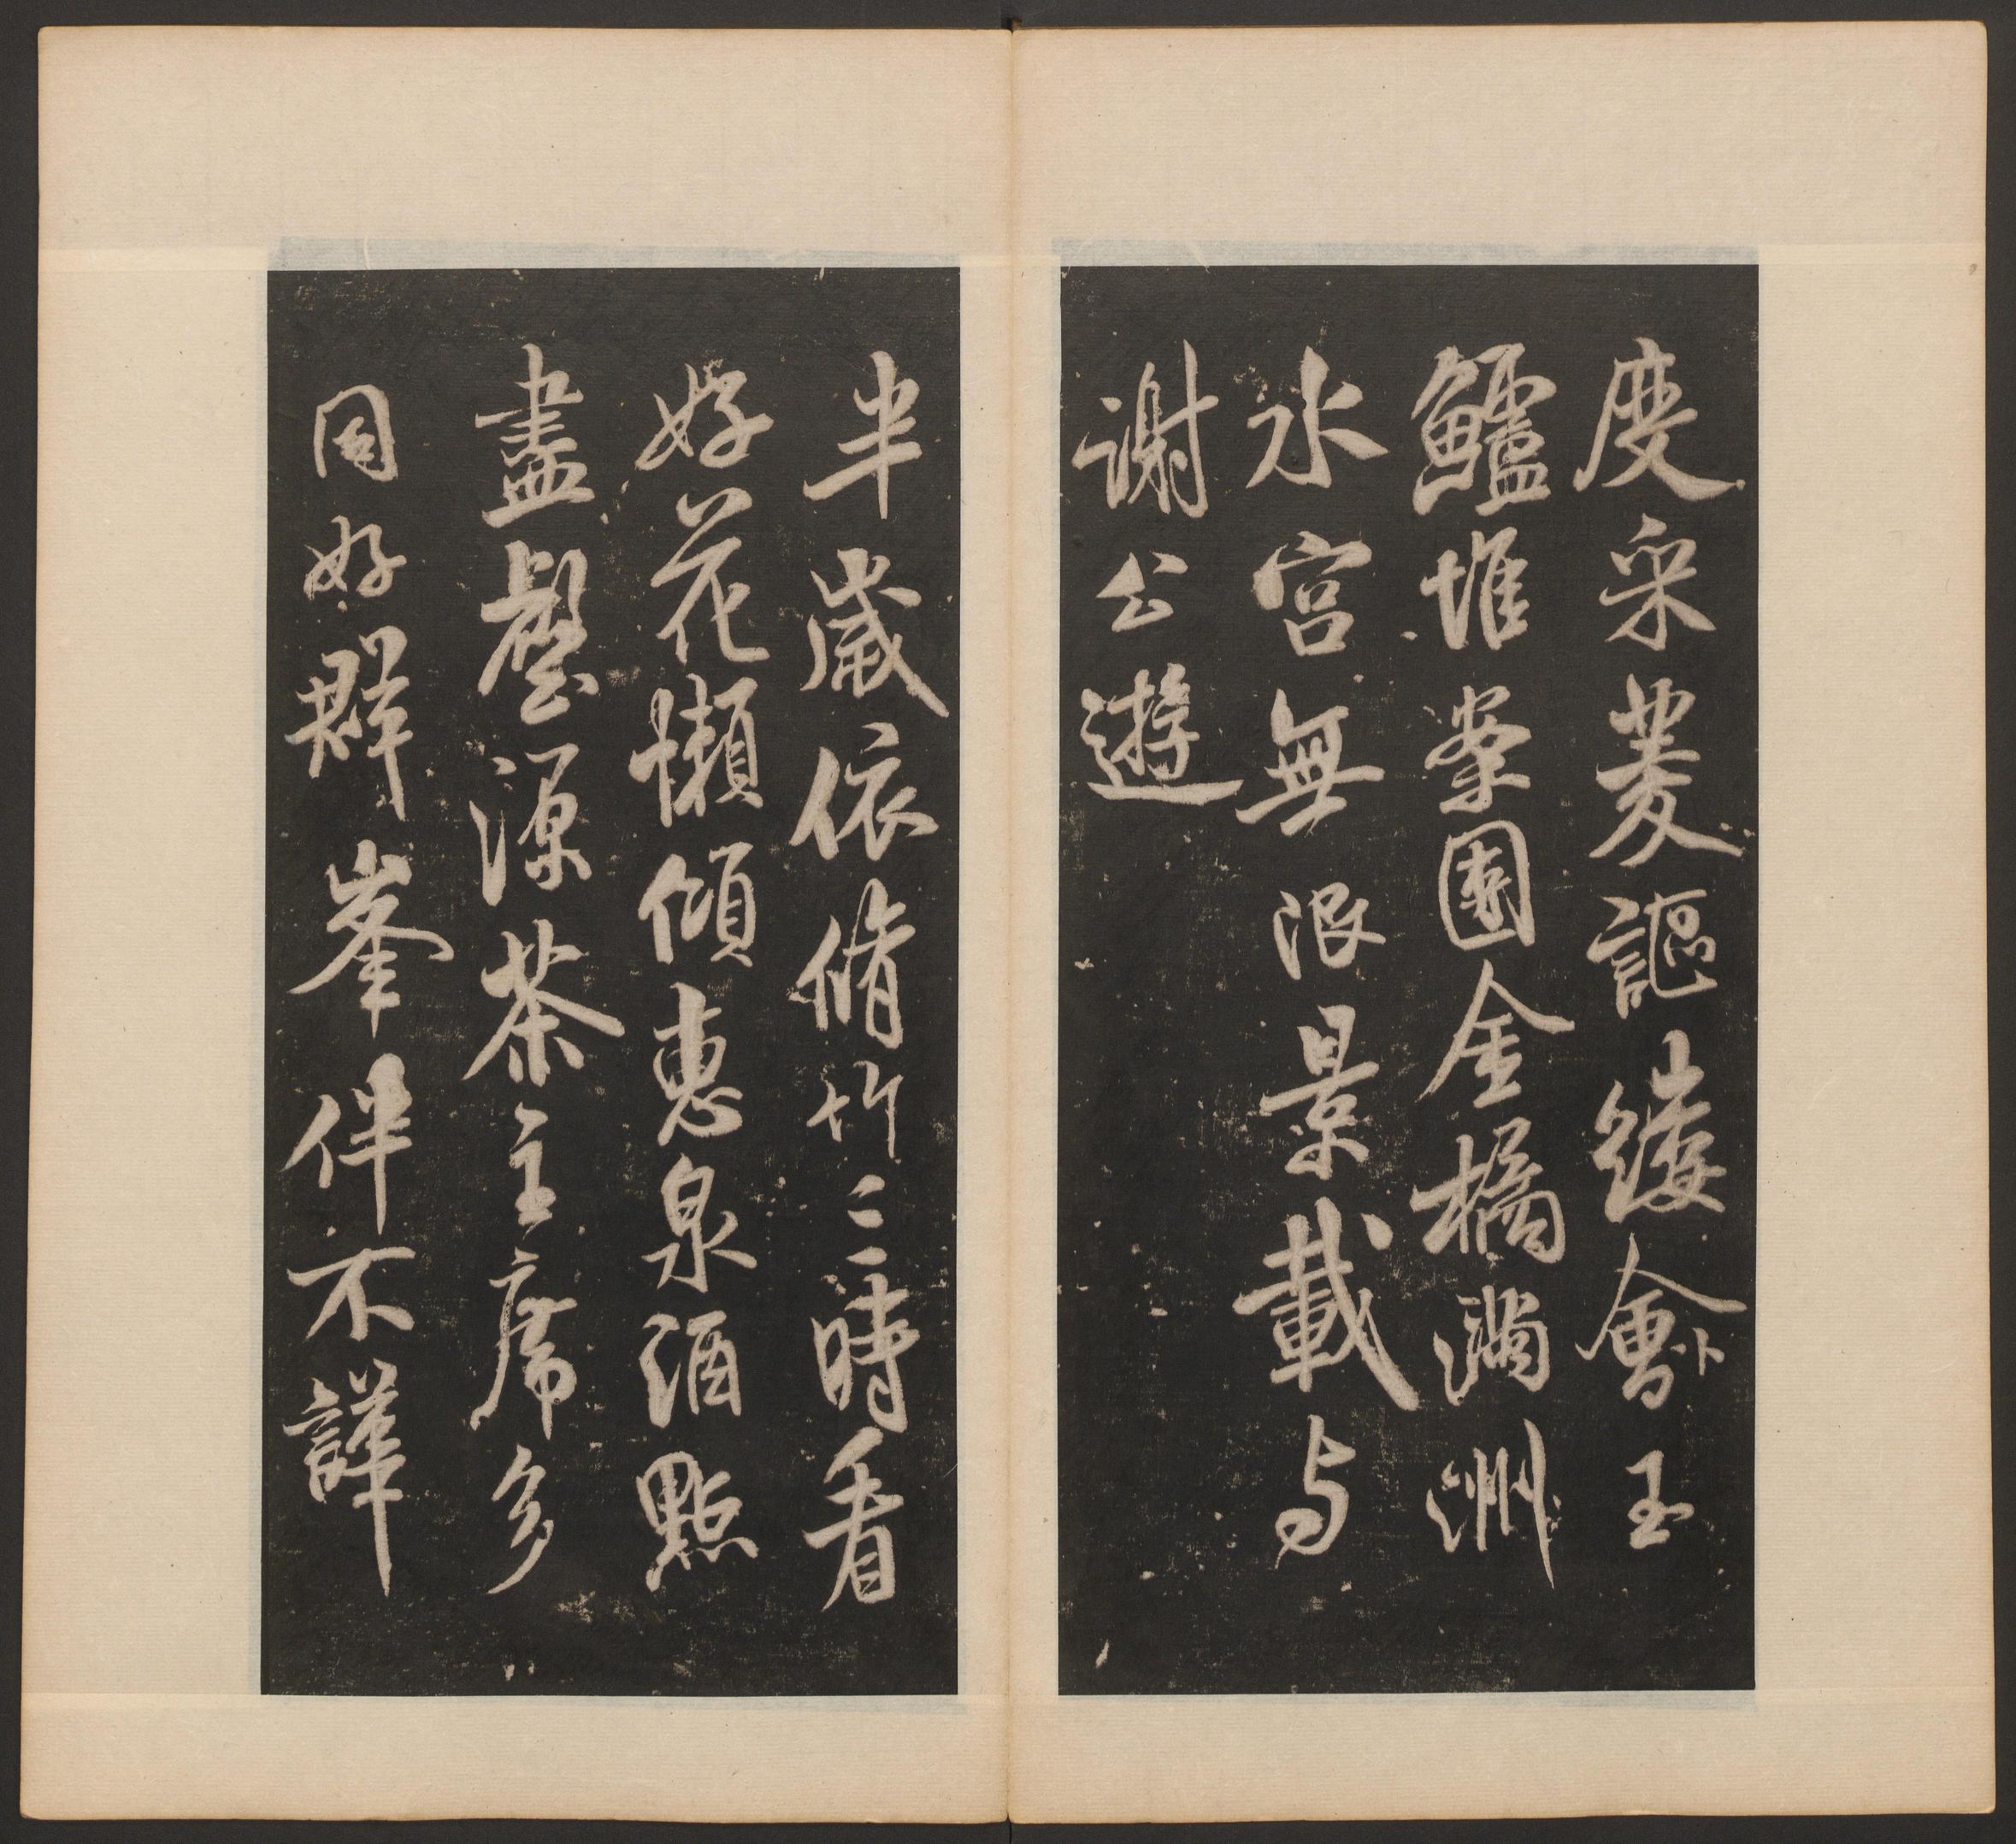 度采菱謳縷會玉
鱸堆案團金橘滿洲
水宮無限景載与
謝公遊
半歲依脩竹三時看
好花懶傾惠泉酒點
盡壑源茶主席多
同好群峯伴不譁